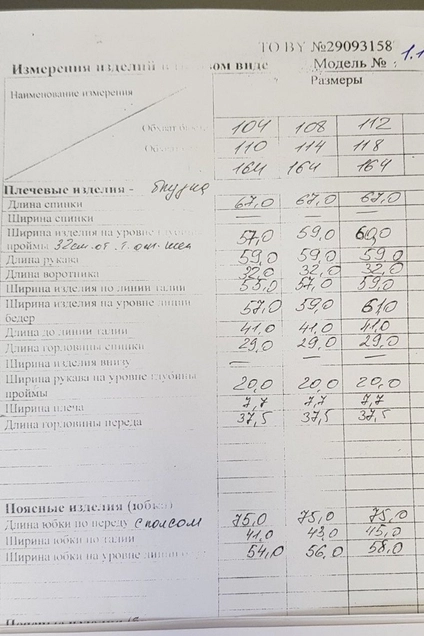 ТО BY №29093158
Измерения изделий в виде Модель № : 1.1
Размеры
Наименование измерения
Обхват 104 108 112
110 114 118
164 164 164
Плечевые изделия - блузка
Длина спинки 67,0 67,0 67,0
Ширина спинки — — —
Ширина изделия на уровне
проймы 32см.от. т. осн. шеи 57,0 59,0 61,0
Длина рукава 59,0 59,0 59,0
Длина воротника 32,0 32,0 32,0
Ширина изделия по линии талии 55,0 57,0 59,0
Ширина изделия на уровне линии
бедер 57,0 59,0 61,0
Длина до линии талии 41,0 41,0 41,0
Длина горловины спинки 29,0 29,0 29,0
Ширина изделия внизу — —
Ширина рукава на уровне глубины
проймы 20,0 20,0 20,0
Ширина плеча 7,7 7,7 7,7
Длина горловины переда 37,5 37,5 37,5
Поясные изделия (юбка)
Длина юбки по переду с поясом 75,0 75,0 75,0
Ширина юбки по талии 41,0 43,0 45,0
Ширина юбки на уровне линии 54,0 56,0 58,0